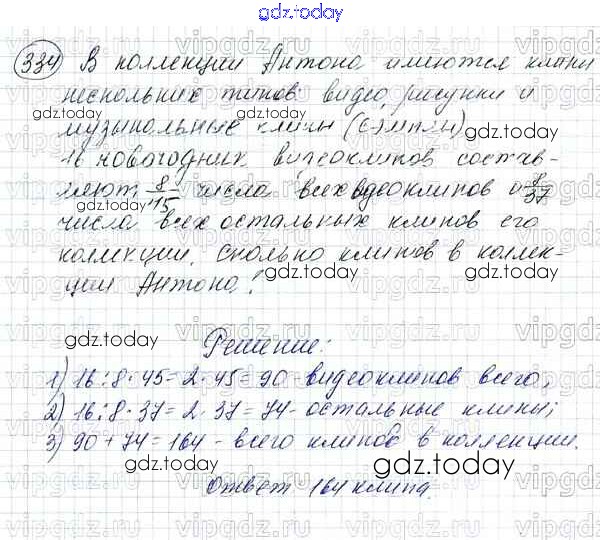 gdz.today
334 В коллекции Антона имеются клипы
нескольких типов: видео, рисунки и
музыкальные клипы (сэмплы)
16 новогодних видеоклипов состав-
ляют 8/45 числа всех видеоклипов и 8/37
числа всех остальных клипов его
коллекции. Сколько клипов в коллек-
ции Антона?
Решение:
1) 16:8·45=2·45=90- видеоклипов всего;
2) 16:8·37=2·37=74- остальные клипы;
3) 90+74=164- всего клипов в коллекции.
Ответ 164 клипа.